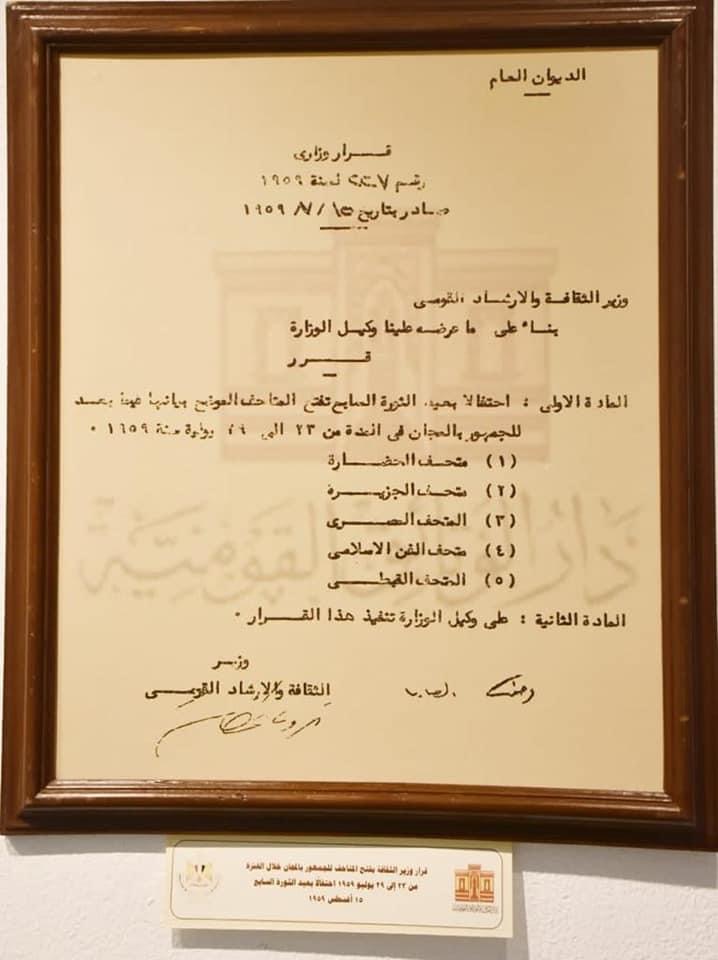 الديوان العام
قـــرار وزارى
رقـم لسنة ١٩٥٩
صـادر بتاريخ ١٥ / ٧/ ١٩٥٩
وزير الثقافـة والارشـاد القومـى
بنـاء على ما عرضـه علينا وكيـل الوزارة
قـــرر
المادة الاولى : احتفالا بعيد الثورة السابع تفتح المتاحف الموضح بيانها فيما بعـد
للجمهور بالمجان فى المدة من ٢٣ الى ٢٩ يولية سنة ١٩٥٩ ٠
(١) متحـف الحضـارة
(٢) متحـف الجزيـرة
(٣) المتحف المصـرى
(٤) متحف الفن الاسلامى
(٥) المتحف القبطـى
المادة الثانية : على وكيل الوزارة تنفيذ هذا القـرار ٠
وزيـر
الثقافة والارشاد القومـى
دار الوثائق القومية
قرار وزير الثقافة بفتح المتاحف للجمهور بالمجان خلال الفترة
من ٢٣ إلى ٢٩ يوليو ١٩٥٩ احتفالا بعيد الثورة السابع
١٥ أغسطس ١٩٥٩